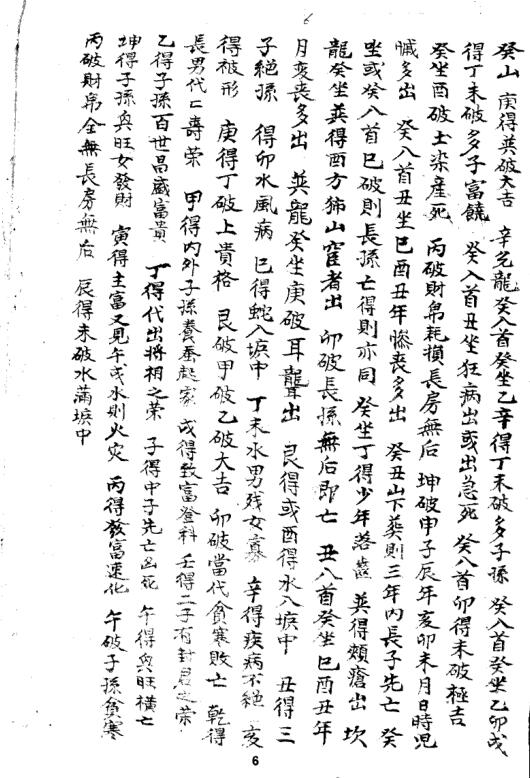 癸山 庚得巽破大吉 辛兌龍癸入首癸坐乙辛得丁未破多子孫 癸入首癸坐乙卯戌
得丁未破多子富饒 癸入首丑坐狂病出或出急死 癸八首卯得未破極吉
癸坐酉破土染産死 丙破財帛耗損長房無后 坤破申子辰年亥卯未月日時児
賊多出 癸八首丑坐巳酉丑年惨喪多出 癸丑山下葬則三年内長子先亡 癸
坐或癸八首巳破則長孫亡得則亦同 癸坐丁得少年落齒 巽得頰瘡出 坎
龍癸坐巽得西方狮山窺者出 卯破長孫無后即亡 丑八首癸坐巳酉丑年
月変喪多出 巽龍癸坐庚破耳聾出 艮得或酉得水入塚中 丑得三
子絕孫 得卯水風病 巳得蛇入塚中 丁未水男残女寡 辛得疾病不絶 亥
得被形 庚得丁破上貴格 艮破甲破乙破大吉 卯破當代貧寒敗亡 乾得
長男代二壽荣 甲得内外子孫養蚕起家 戌得致富登科 壬得二子有封君之荣
乙得子孫百世昌盛富貴 丁得代出將相之荣 子得中子先亡凶死 午得興旺橫亡
坤得子孫興旺女發財 寅得主富又見午戌水則火灾 丙得發富速化 午破子孫貧寒
丙破財帛全無長房無后 辰得未破水滿塚中
6